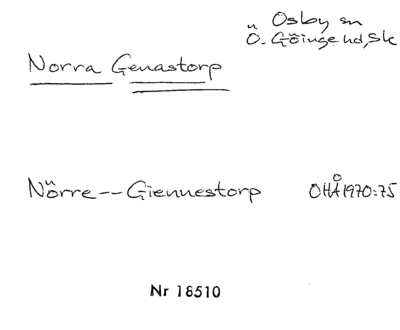 Osby sn
Ö. Göinge hd, Sk
Norra Genastorp
Nörre-- Giennestorp OHÅ 1970:75
Nr 18510